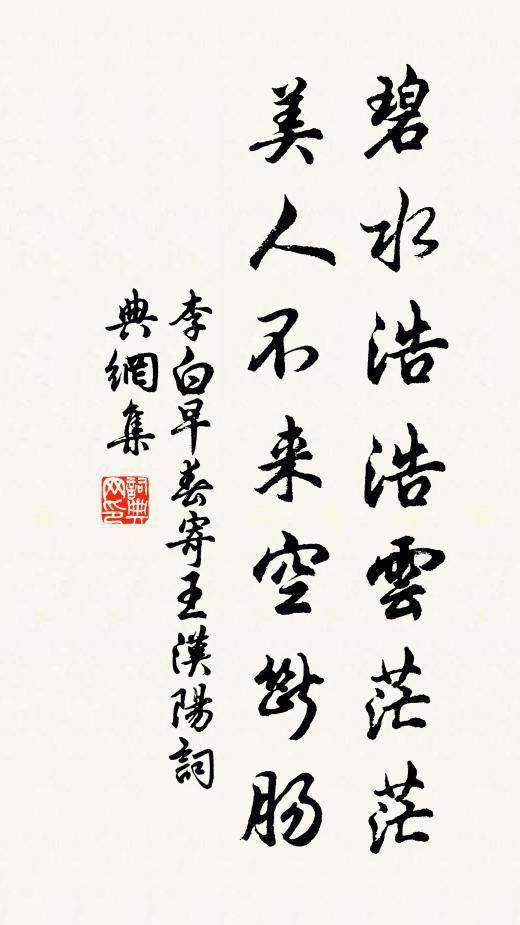 碧水浩浩雲茫茫
美人不来空断腸
李白早春寄王漢陽詞
典網集
詞典网印